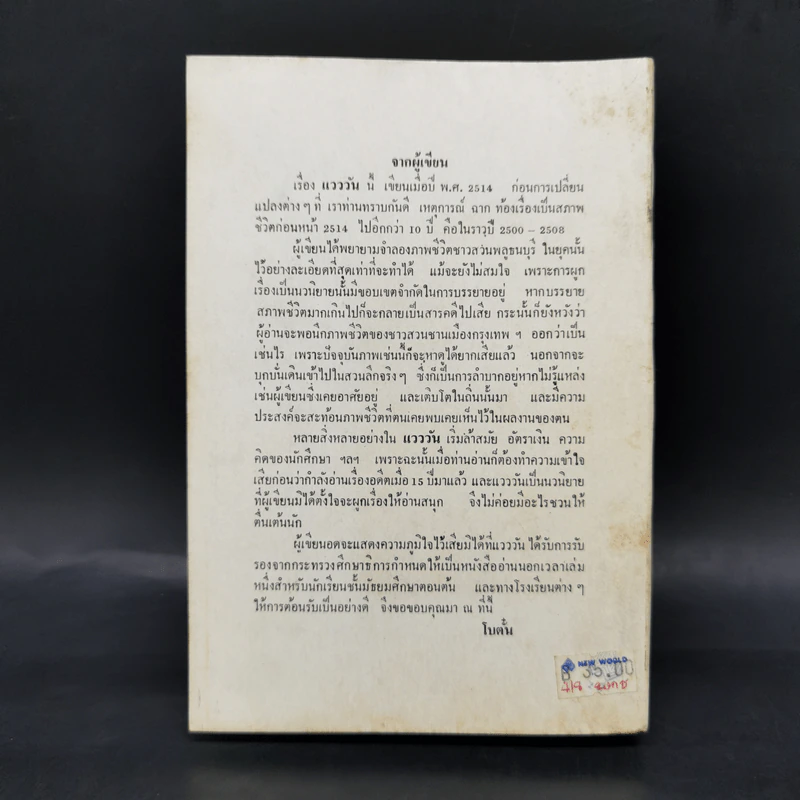 จากผู้เขียน
เรื่อง แวววัน นี้ เขียนเมื่อปี พ.ศ. 2514 ก่อนการเปลี่ยน
แปลงต่าง ๆ ที่ เราท่านทราบกันดี เหตุการณ์ ฉาก ท้องเรื่องเป็นสภาพ
ชีวิตก่อนหน้า 2514 ไปอีกกว่า 10 ปี คือในราวปี 2500 – 2508
ผู้เขียนได้พยายามจำลองภาพชีวิตชาวสวนพลูธนบุรี ในยุคนั้น
ไว้อย่างละเอียดที่สุดเท่าที่จะทำได้ แม้จะยังไม่สมใจ เพราะการผูก
เรื่องเป็นนวนิยายนั้นมีขอบเขตจำกัดในการบรรยายอยู่ หากบรรยาย
สภาพชีวิตมากเกินไปก็จะกลายเป็นสารคดีไปเสีย กระนั้นก็ยังหวังว่า
ผู้อ่านจะพอนึกภาพชีวิตของชาวสวนชานเมืองกรุงเทพ ฯ ออกว่าเป็น
เช่นไร เพราะปัจจุบันภาพเช่นนี้ก็จะหาดูได้ยากเสียแล้ว นอกจากจะ
บุกบั่นเดินเข้าไปในสวนลึกจริง ๆ ซึ่งก็เป็นการลำบากอยู่หากไม่รู้แหล่ง
เช่นผู้เขียนซึ่งเคยอาศัยอยู่ และเติบโตในถิ่นนั้นมา และมีความ
ประสงค์จะสะท้อนภาพชีวิตที่ตนเคยพบเคยเห็นไว้ในผลงานของตน
หลายสิ่งหลายอย่างใน แวววัน เริ่มล้าสมัย อัตราเงิน ความ
คิดของนักศึกษา ฯลฯ เพราะฉะนั้นเมื่อท่านอ่านก็ต้องทำความเข้าใจ
เสียก่อนว่ากำลังอ่านเรื่องอดีตเมื่อ 15 ปีมาแล้ว และแวววันเป็นนวนิยาย
ที่ผู้เขียนมิได้ตั้งใจจะผูกเรื่องให้อ่านสนุก จึงไม่ค่อยมีอะไรชวนให้
ตื่นเต้นนัก
ผู้เขียนอดจะแสดงความภูมิใจไว้เสียมิได้ที่แวววัน ได้รับการรับ
รองจากกระทรวงศึกษาธิการกำหนดให้เป็นหนังสืออ่านนอกเวลาเล่ม
หนึ่งสำหรับนักเรียนชั้นมัธยมศึกษาตอนต้น และทางโรงเรียนต่าง ๆ
ให้การต้อนรับเป็นอย่างดี จึงขอขอบคุณมา ณ ที่นี้
โบตั๋น
NEW WORLD
฿ 35.00